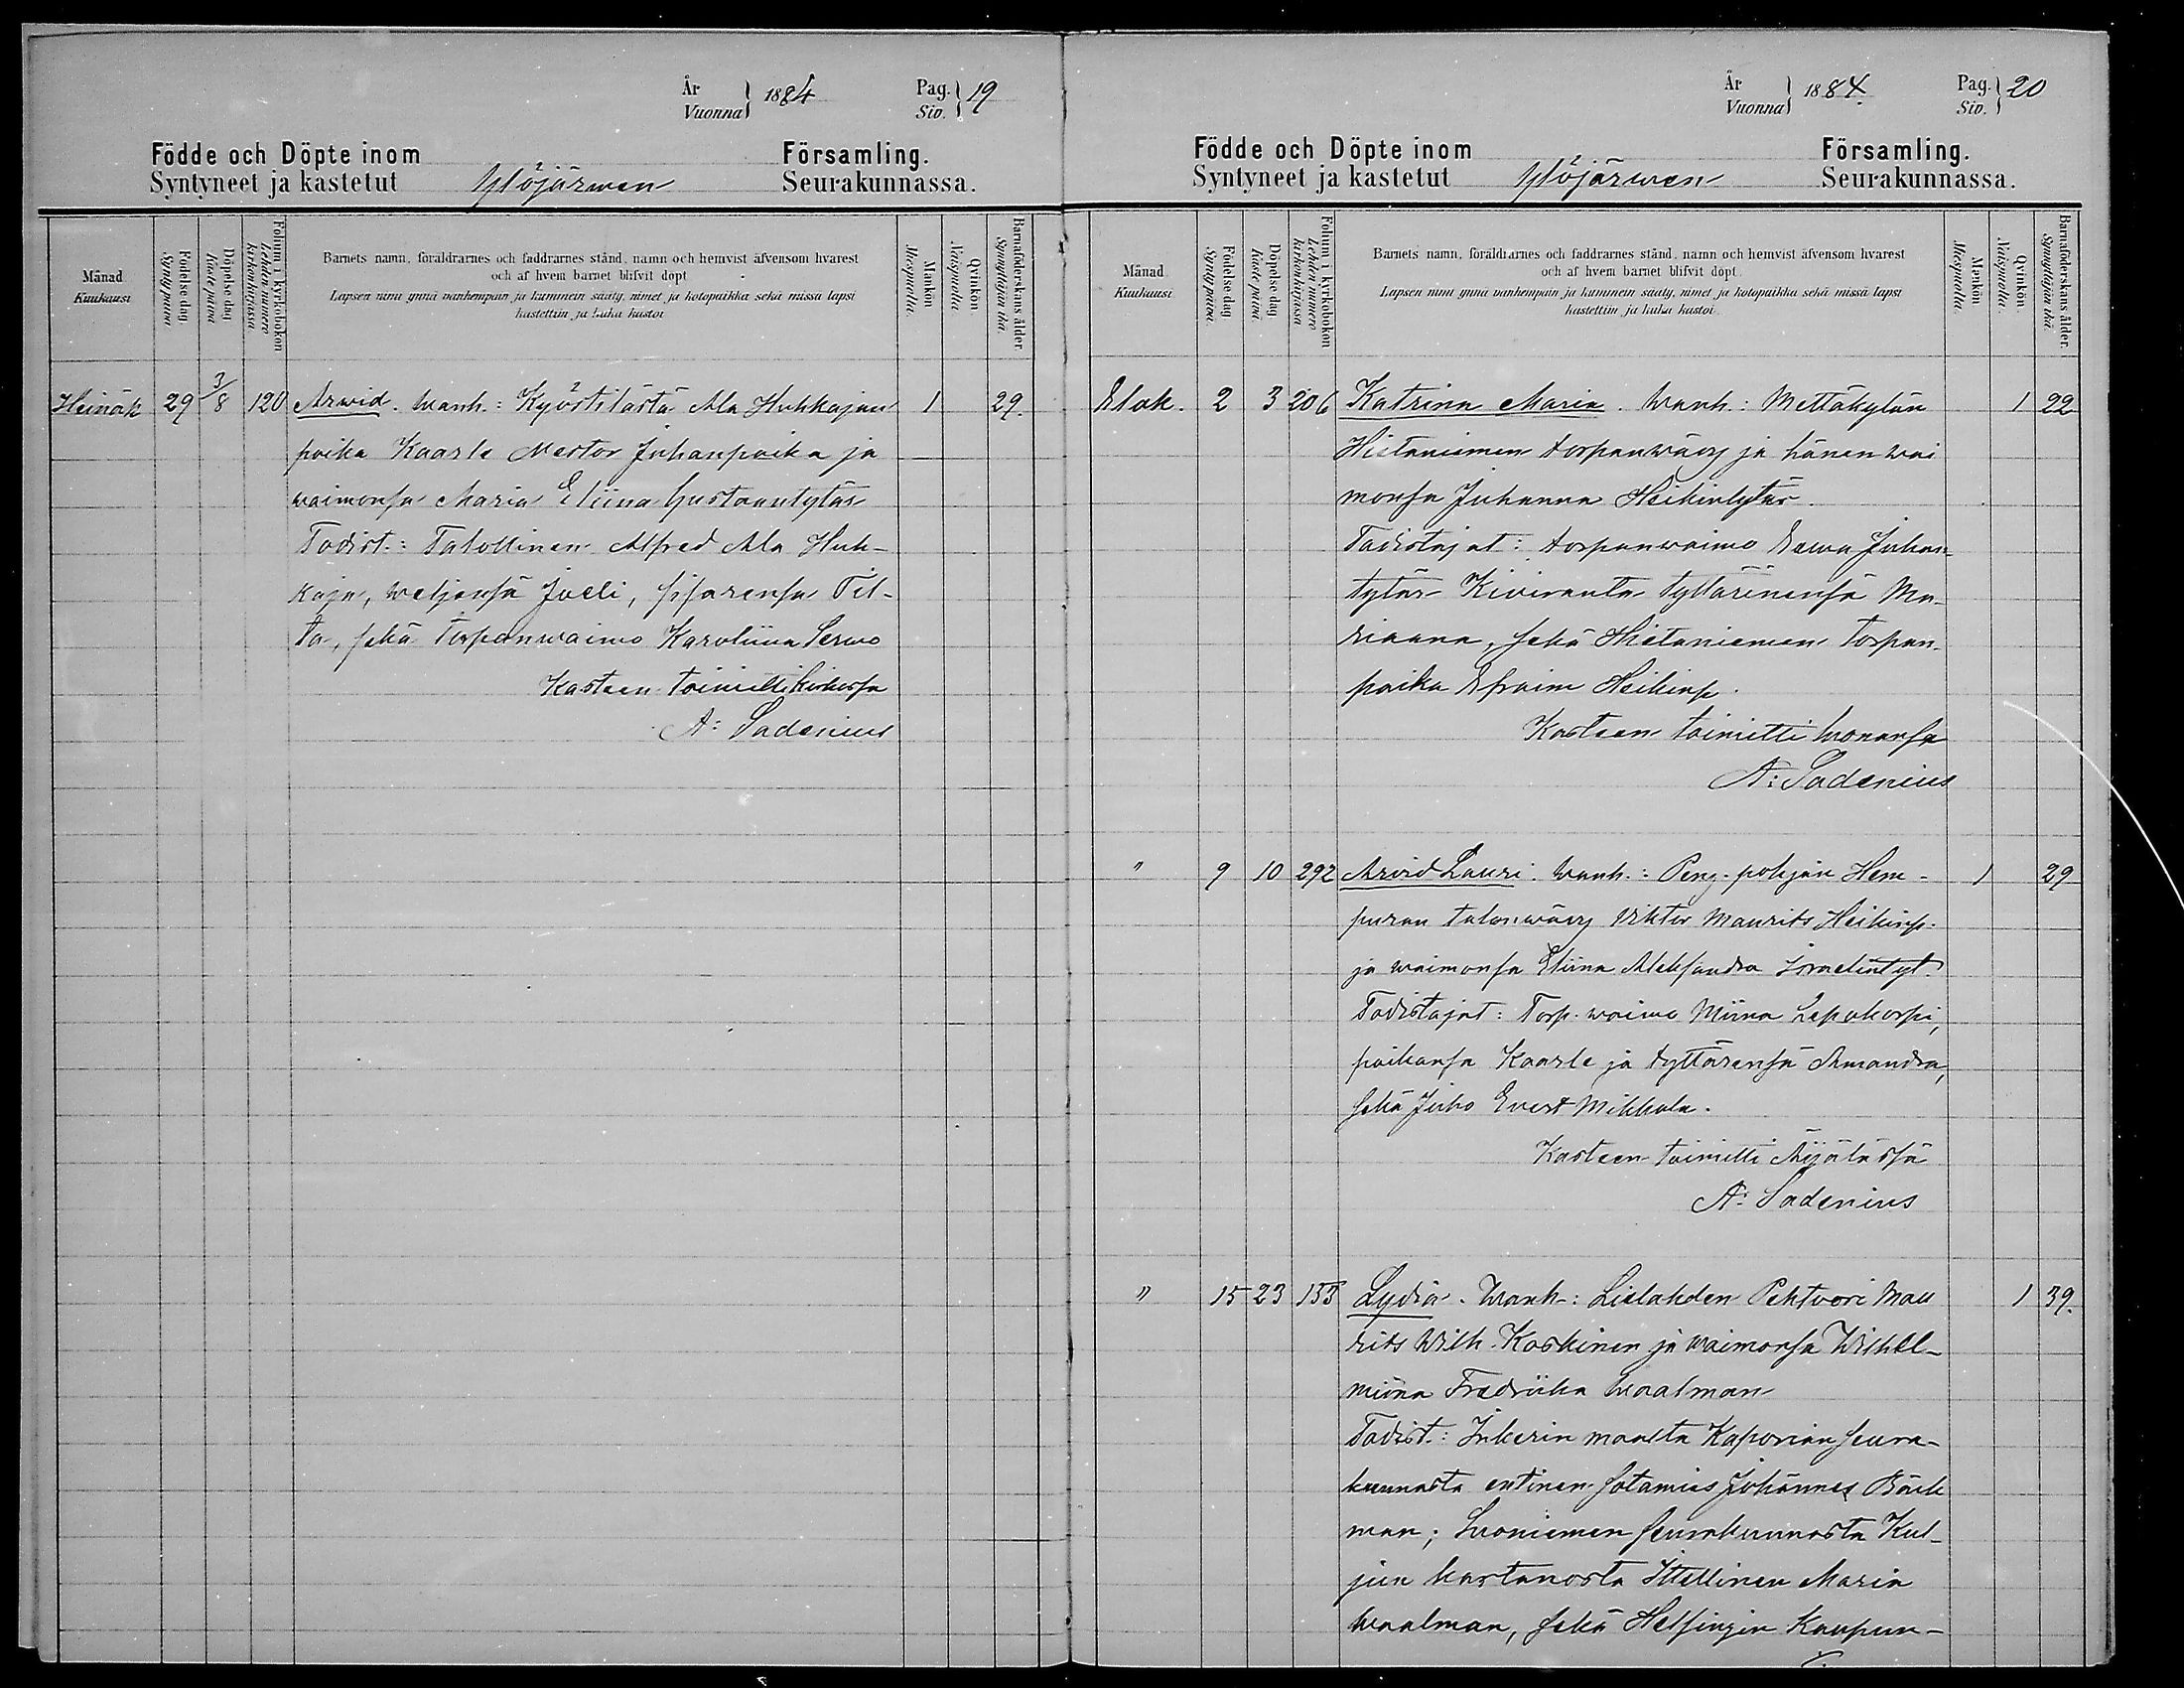 År
Vuonna } 1884 Pag.
Siv. } 19
Födde och Döpte inom Församling.
Syntyneet ja kastetut Ylöjärwen Seurakunnassa.
Månad
Kuukausi
Födelse dag.
Synty päivä
Döpelse dag
Kaste päivä
Folium i kyrkoboken
Lehden numero
kirkonkirjassa
Barnets namn, föräldrarnes och faddrarnes stånd, namn och hemvist äfvensom hvarest
och af hvem barnet blifvit döpt
Lapsen nimi ynnä vanhempain ja kummein sääty, nimet ja kotopaikka sekä missä lapsi
kastettiin ja kuka kastoi
Mankön
Miespuolia.
Qvinkön
Naispuolia
Barnaföderskans ålder.
Synnyttäjän ikä
Heinäk 29 3/8 120 Arwid. Wanh.: Kyöstilästä Ala Huhkajan 1 29.
poika Kaarle Nestor Juhanpoika ja
waimonsa Maria Eliina Gustaantytär
Todist.: Talollinen Alfred Ala Huh-
kaja, weljensä Joeli, sisarensa Til-
da, sekä Torpanwaimo Karoliina Serwo
Kasteen toimitti kirkossa
A: Sadenius
År
Vuonna } 1884. Pag.
Siv. } 20
Födde och Döpte inom Församling.
Syntyneet ja kastetut Ylöjärwen Seurakunnassa.
Månad
Kuukausi
Födelse dag
Synty päivä.
Döpelse dag
Kaste päivä.
Folium i kyrkoboken
Lehden numero
kirkonkirjassa
Barnets namn, föräldrarnes och faddrarnes stånd, namn och hemvist äfvensom hvarest
och af hvem barnet blifvit döpt.
Lapsen nimi ynnä vanhempain ja kummein sääty, nimet ja kotopaikka sekä missä lapsi
kastettiin ja kuka kastoi.
Menkön
Miespuolia
Qvinkön.
Naispuolia.
Barnaföderskans ålder.
Synnyttäjän ikä.
Elok. 2 3 206 Katrina Maria. Wanh.: Mettäkylän 1 22
Hietaniemen torpanwäwy ja hänen wai
monsa Juhanna Heikintytär.
Todistajat: torpanwaimo Eewa Juhan-
tytär Kiviranta tyttärinensä Ma-
riaana, sekä Hietaniemen torpan-
poika Efraim Heikinp.
Kasteen toimitti luonansa
A: Sadenius
" 9 10 292 Arvid Lauri. Wanh.: Peng. pohjan Hem- 1 29
puran talonwäwy Viktor Maurits Heikinp.
ja waimonsa Eliina Aleksandra Israelintyt.
Todistajat: Torp. waimo Miina Lepokorpi,
poikansa Kaarle ja tyttärensä Amanda,
sekä Juho Evert Mikkola.
Kasteen toimitti Äijälässä
A: Sadenius
" 15 23 153 Lydia. Wanh.: Lielahden Pehtoori Mau 1 39.
rits Wilh. Koskinen ja waimonsa Wilhel-
miina Fredriika Waalman
Todist.: Inkerin maalta Kaporian seura-
kunnasta entinen sotamies Johannes Bäck
man; Suoniemen seurakunnasta Kul-
jun kartanosta Itsellinen Maria
Waalman, sekä Helsingin Kaupun-